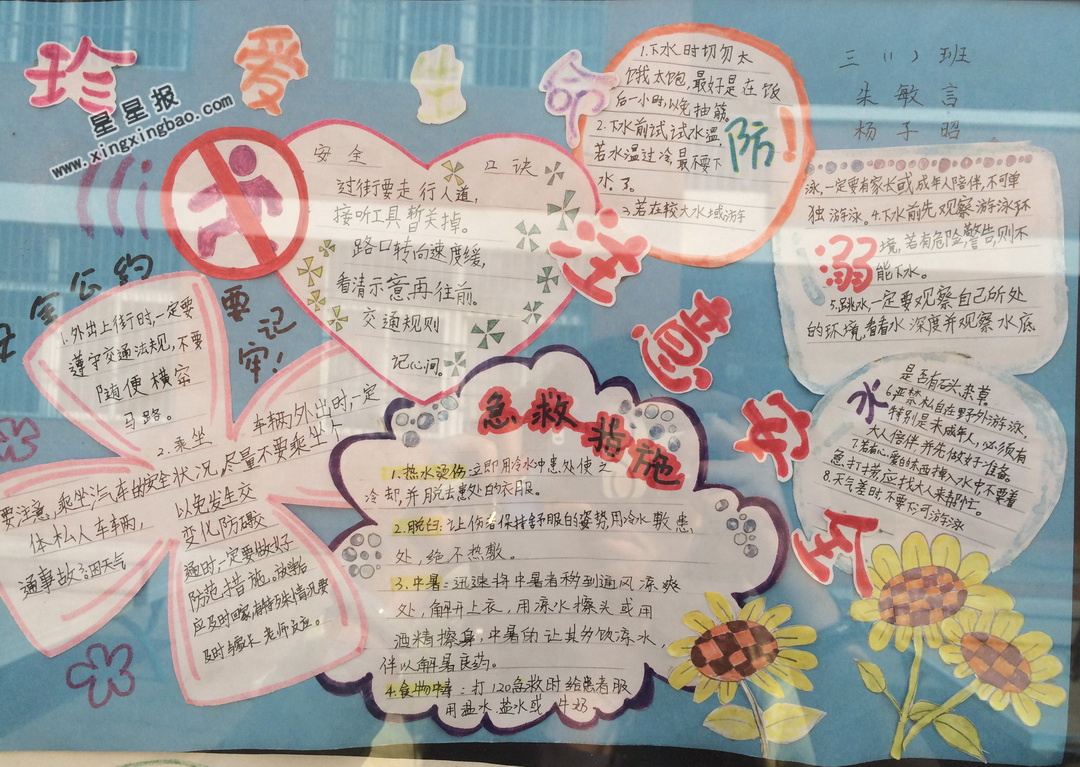 珍爱生命
星星报
www.xingxingbao.com
三(1)班
朱敏言
杨子昭
注意安全
防溺水
!
1.下水时切勿太
饿太饱,最好是在饭
后一小时,以免抽筋
2.下水前试试水温,
若水温过冷最不要下
水了。
3.若在较大水域游
泳,一定要有家长或成年人陪伴,不可单
独游泳。4.下水前先观察游泳环
境,若有危险警告,则不
能下水。
5.跳水,一定要观察自己所处
的环境,看看水深度并观察水底
是否有石头杂草。
6.严禁私自在野外游泳,
特别是未成年人,必须有
大人陪伴,并先做好准备。
7.若有心爱的东西掉入水中不要着
急打捞,应找大人来帮忙。
8.天气差时不要下河游泳
安全 口诀
过街要走行人道,
接听工具暂关掉。
路口转向速度缓,
看清示意再往前。
交通规则
记心间。
全公约
要记牢!
1.外出上街时,一定要
遵守交通法规,不要
随便横穿
马路。
2.乘坐 车辆外出时,一定
要注意,乘坐汽车的安全状况,尽量不要乘坐个
体私人车辆, 以免发生交
通事故3.因天气 变化防
通时一定要做好
防范措施。放学后
应及时回家,有特殊情况要
及时与家长老师反应。
急救措施
1.热水烫伤:立即用冷水冲患处使之
冷却,并脱去患处的衣服。
2.脱臼:让伤者保持舒服的姿势,用冷水敷患
处,绝不热敷。
3.中暑:迅速将中暑者移到通风凉爽
处,解开上衣,用凉水擦头或用
酒精擦身,中暑的让其多饮凉水,
伴以解暑医药。
4.食物中毒:打120急救时给患者服
用温水.盐水或牛奶。